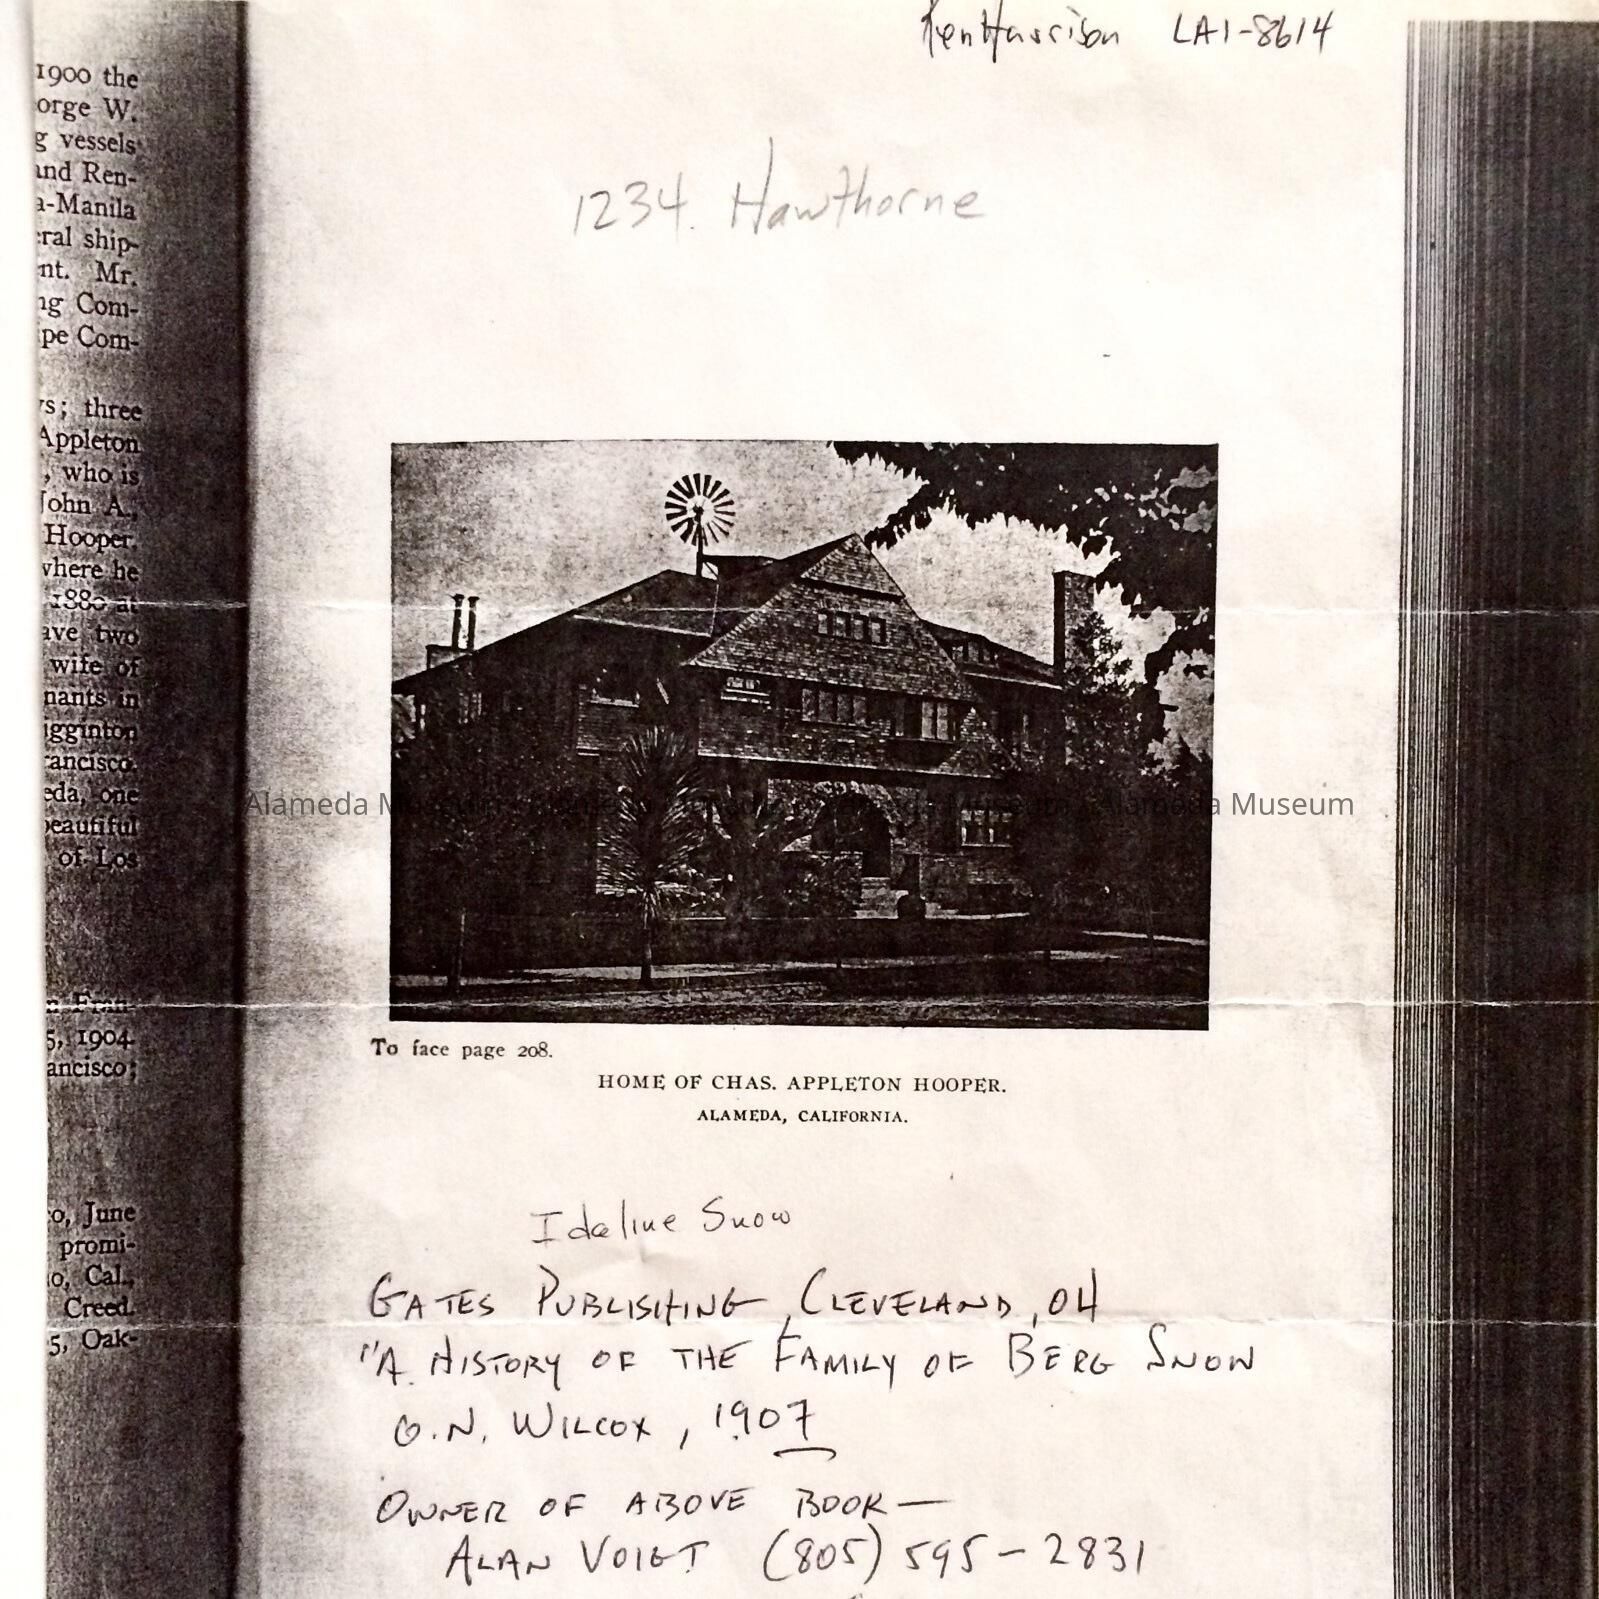 Ken Harrison LA1-8614
1234. Hawthorne
1900 the
orge W.
g vessels
and Ren-
a-Manila
ral ship-
nt. Mr.
ng Com-
pe Com-
rs; three
Appleton
, who is
John A.,
Hooper.
where he
1880 at
ave two
wife of
nants in
igginton
ancisco.
eda, one
beautiful
of Los
Fran-
5, 1904
ancisco;
o, June
promi-
o, Cal.,
Creed.
5, Oak-
Alameda Museum Alameda Museum Alameda Museum Alameda Museum
To face page 208.
HOME OF CHAS. APPLETON HOOPER.
ALAMEDA, CALIFORNIA.
Idaline Snow
GATES PUBLISHING, CLEVELAND, OH
"A HISTORY OF THE FAMILY OF BERG SNOW
O.N. WILCOX, 1907
OWNER OF ABOVE BOOK—
ALAN VOIGT (805) 595-2831